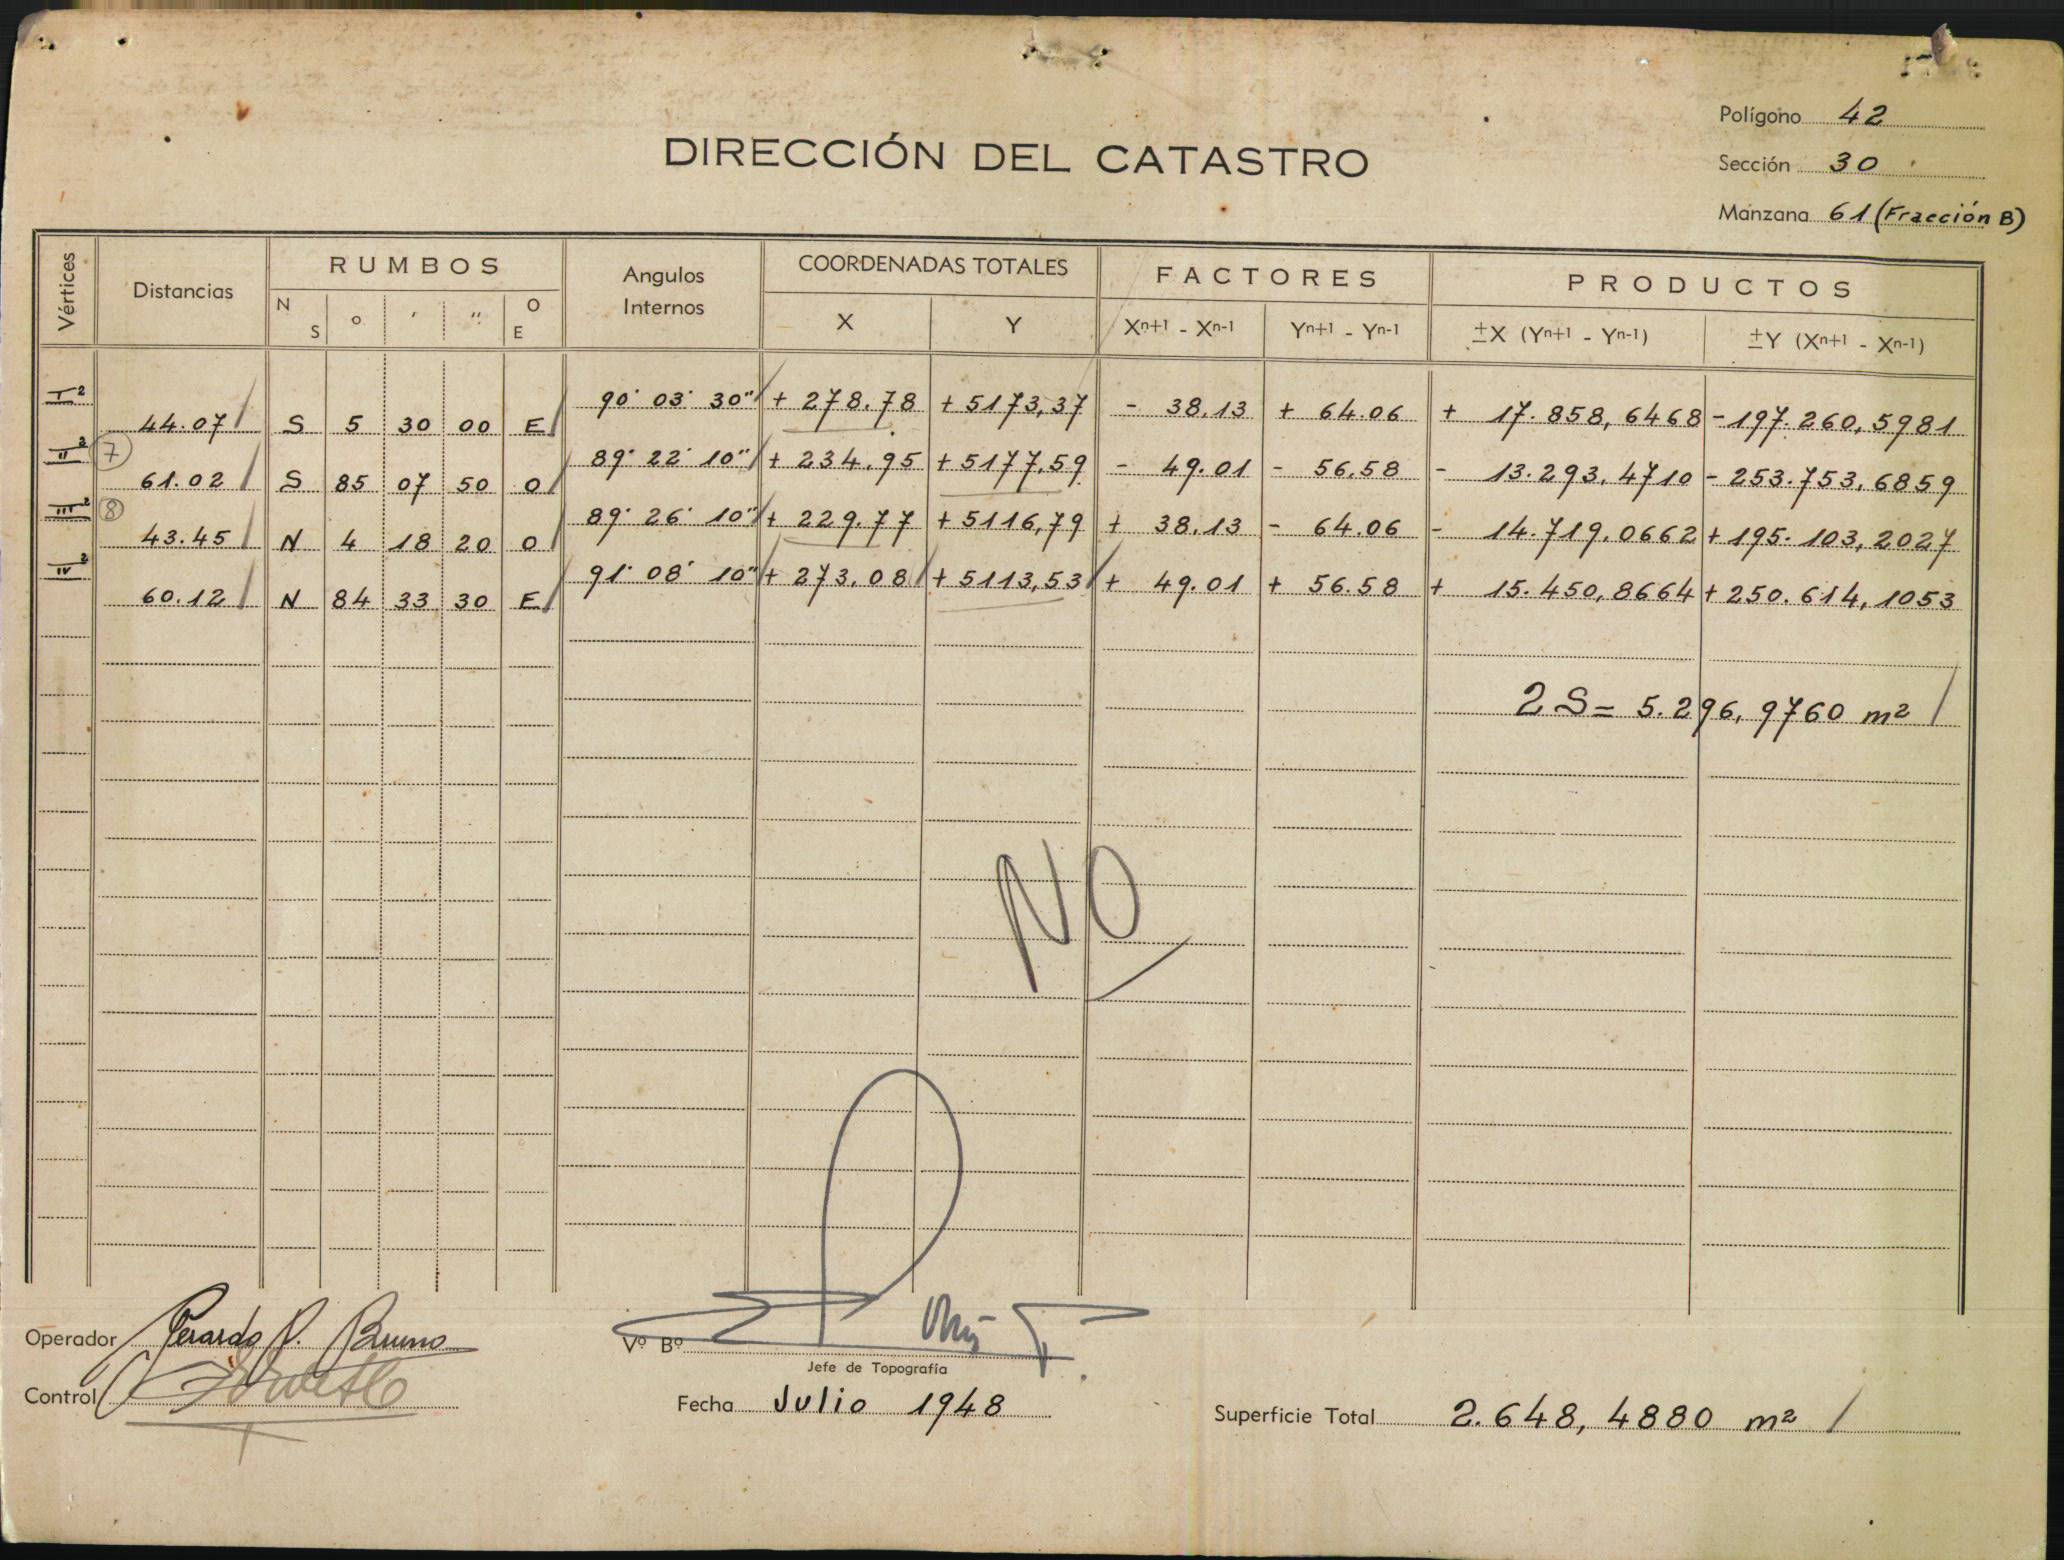 Polígono 42
DIRECCIÓN DEL CATASTRO
Sección 30
Manzana 61 (Fracción B)
Vértices Distancias RUMBOS Angulos Internos COORDENADAS TOTALES FACTORES PRODUCTOS
N S o ' '' O E X Y Xn+1 - Xn-1 Yn+1 - Yn-1 ±X (Yn+1 - Yn-1) ±Y (Xn+1 - Xn-1)
I2 90° 03' 30" + 278.78 + 5173,37 - 38.13 + 64.06 + 17.858,6468 - 197.260,5981
44.07 S 5 30 00 E
II2 7 89° 22' 10" + 234.95 + 5177.59 - 49.01 - 56.58 - 13.293.4710 - 253.753,6859
61.02 S 85 07 50 O
III2 8 89° 26' 10" + 229.77 + 5116,79 + 38.13 - 64.06 - 14.719.0662 + 195.103,2027
43.45 N 4 18 20 O
IV2 91° 08' 10" + 273.08 + 5113,53 + 49.01 + 56.58 + 15.450,8664 + 250.614,1053
60.12 N 84 33 30 E
2 S = 5.296,9760 m²
NO
Operador Gerardo P. Bruno
Vº Bº
Jefe de Topografía
Control
Fecha Julio 1948
Superficie Total 2.648,4880 m²